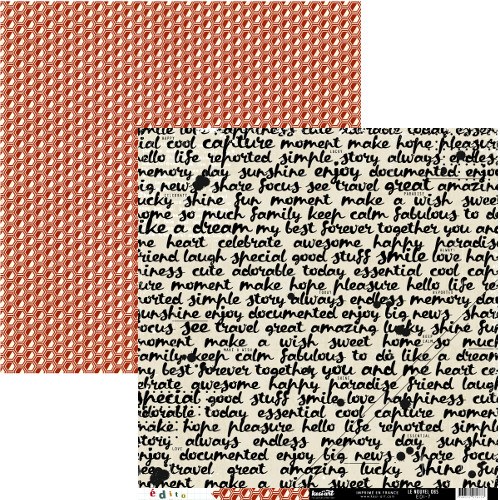 smile love happiness cute adorable today essen
ial cool capture moment make hope pleasure
HAPPY
LUCKY
hello life reported simple story always endles
memory day sunshine enjoy documented enjoy
big news share focus see travel great amazin
CELEBRATE
PARADISE
lucky shine fun moment make a wish sweet
home so much family keep calm fabulous to do
like a dream my best forever together you and
me heart celebrate awesome happy paradis
friend laugh special good stuff smile love hap
piness cute adorable today essential cool cap
ture moment make hope pleasure hello life re
TODAY
REPORTED
ported simple story always endless memory da
sunshine enjoy documented enjoy big news shar
focus see travel great amazing lucky shine fun
KEEP
CALM
moment make a wish sweet home so much
MAKE A WISH
family keep calm fabulous to do like a dream
my best forever together you and me heart ce
SHINE
ebrate awesome happy paradise friend laugh
special good stuff smile love happiness cute
adorable today essential cool capture moment
make hope pleasure hello life reported simple
ESSENTIAL
story always endless memory day sunshine
LOVE
enjoy documented enjoy big news share focus
see travel great amazing lucky shine fun mom
ent make a wish sweet home so much family
édito
kesi'art
IMPRIMÉ EN FRANCE
LE NOUVEL OBS